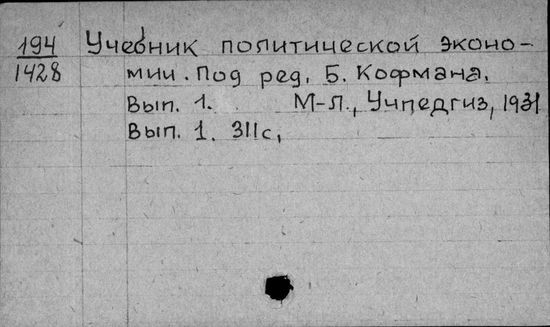 194 Учебник политической эконо-
1428 мии. Под ред. Б. Кофмана.
Вып. 1. М-Л., Учпедгиз, 1931
Вып. 1. 311с,